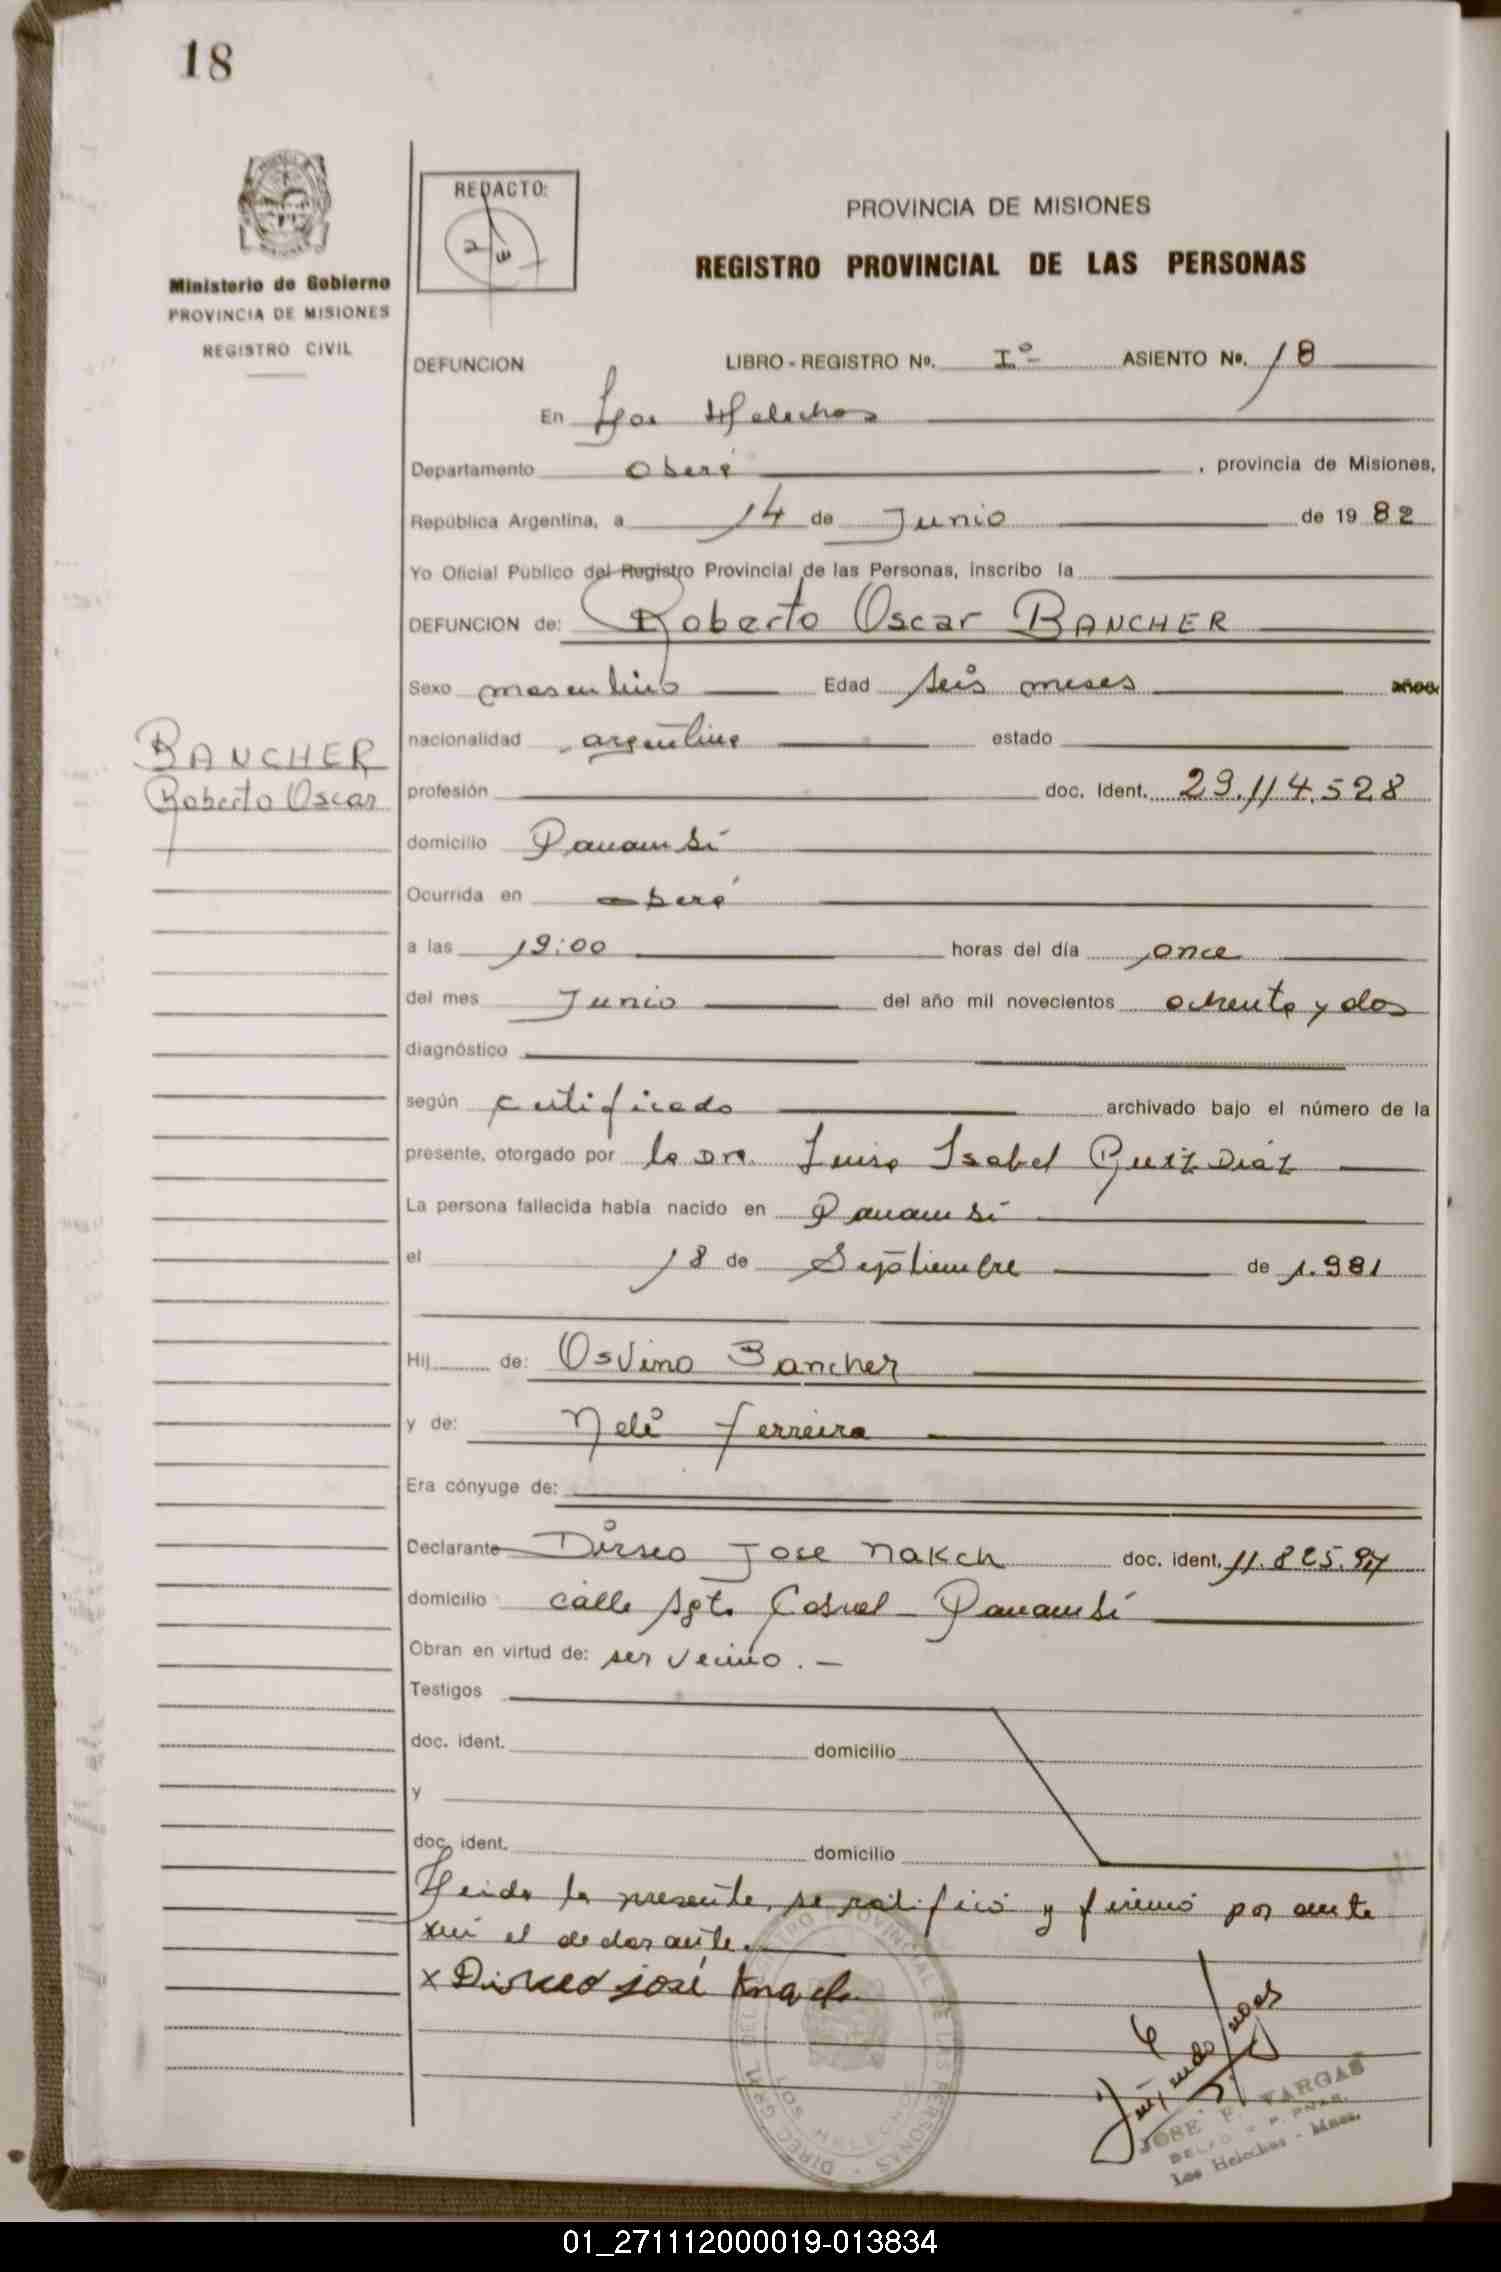 18
REDACTO:
Ministerio de Gobierno
PROVINCIA DE MISIONES
REGISTRO CIVIL
PROVINCIA DE MISIONES
REGISTRO PROVINCIAL DE LAS PERSONAS
DEFUNCION LIBRO - REGISTRO Nº. Iº ASIENTO Nº. 18
En Los Helechos
Departamento Oberá, provincia de Misiones,
República Argentina, a 14 de Junio de 1982
Yo Oficial Público del Registro Provincial de las Personas, inscribo la
DEFUNCION de: Roberto Oscar BANCHER
Sexo masculino Edad seis meses años
BANCHER
Roberto Oscar
nacionalidad argentina estado
profesión doc. Ident. 29.114.528
domicilio Panambí
Ocurrida en oberá
a las 19:00 horas del día once
del mes Junio del año mil novecientos ochenta y dos
diagnóstico
según certificado archivado bajo el número de la
presente, otorgado por la DRA. Luisa Isabel Diaz
La persona fallecida había nacido en Panambí
el 18 de Septiembre de 1.981
Hij de: Osvino Bancher
y de: Neli Ferreira
Era cónyuge de:
Declarante Dirseo Jose Nakch doc. ident. 11.825.
domicilio calle Sgto. Cabral - Panambí
Obran en virtud de: ser vecino. -
Testigos
doc. ident. domicilio
y
doc. ident. domicilio
Leida la presente, se ratificó y firmó por ante
mi el declarante.
x José
JOSE F. VARGAS
Los Helechos - Mnes.
DIREC. GRAL. DEL REGISTRO PROVINCIAL DE LAS PERSONAS
LOS HELECHOS
01_271112000019-013834